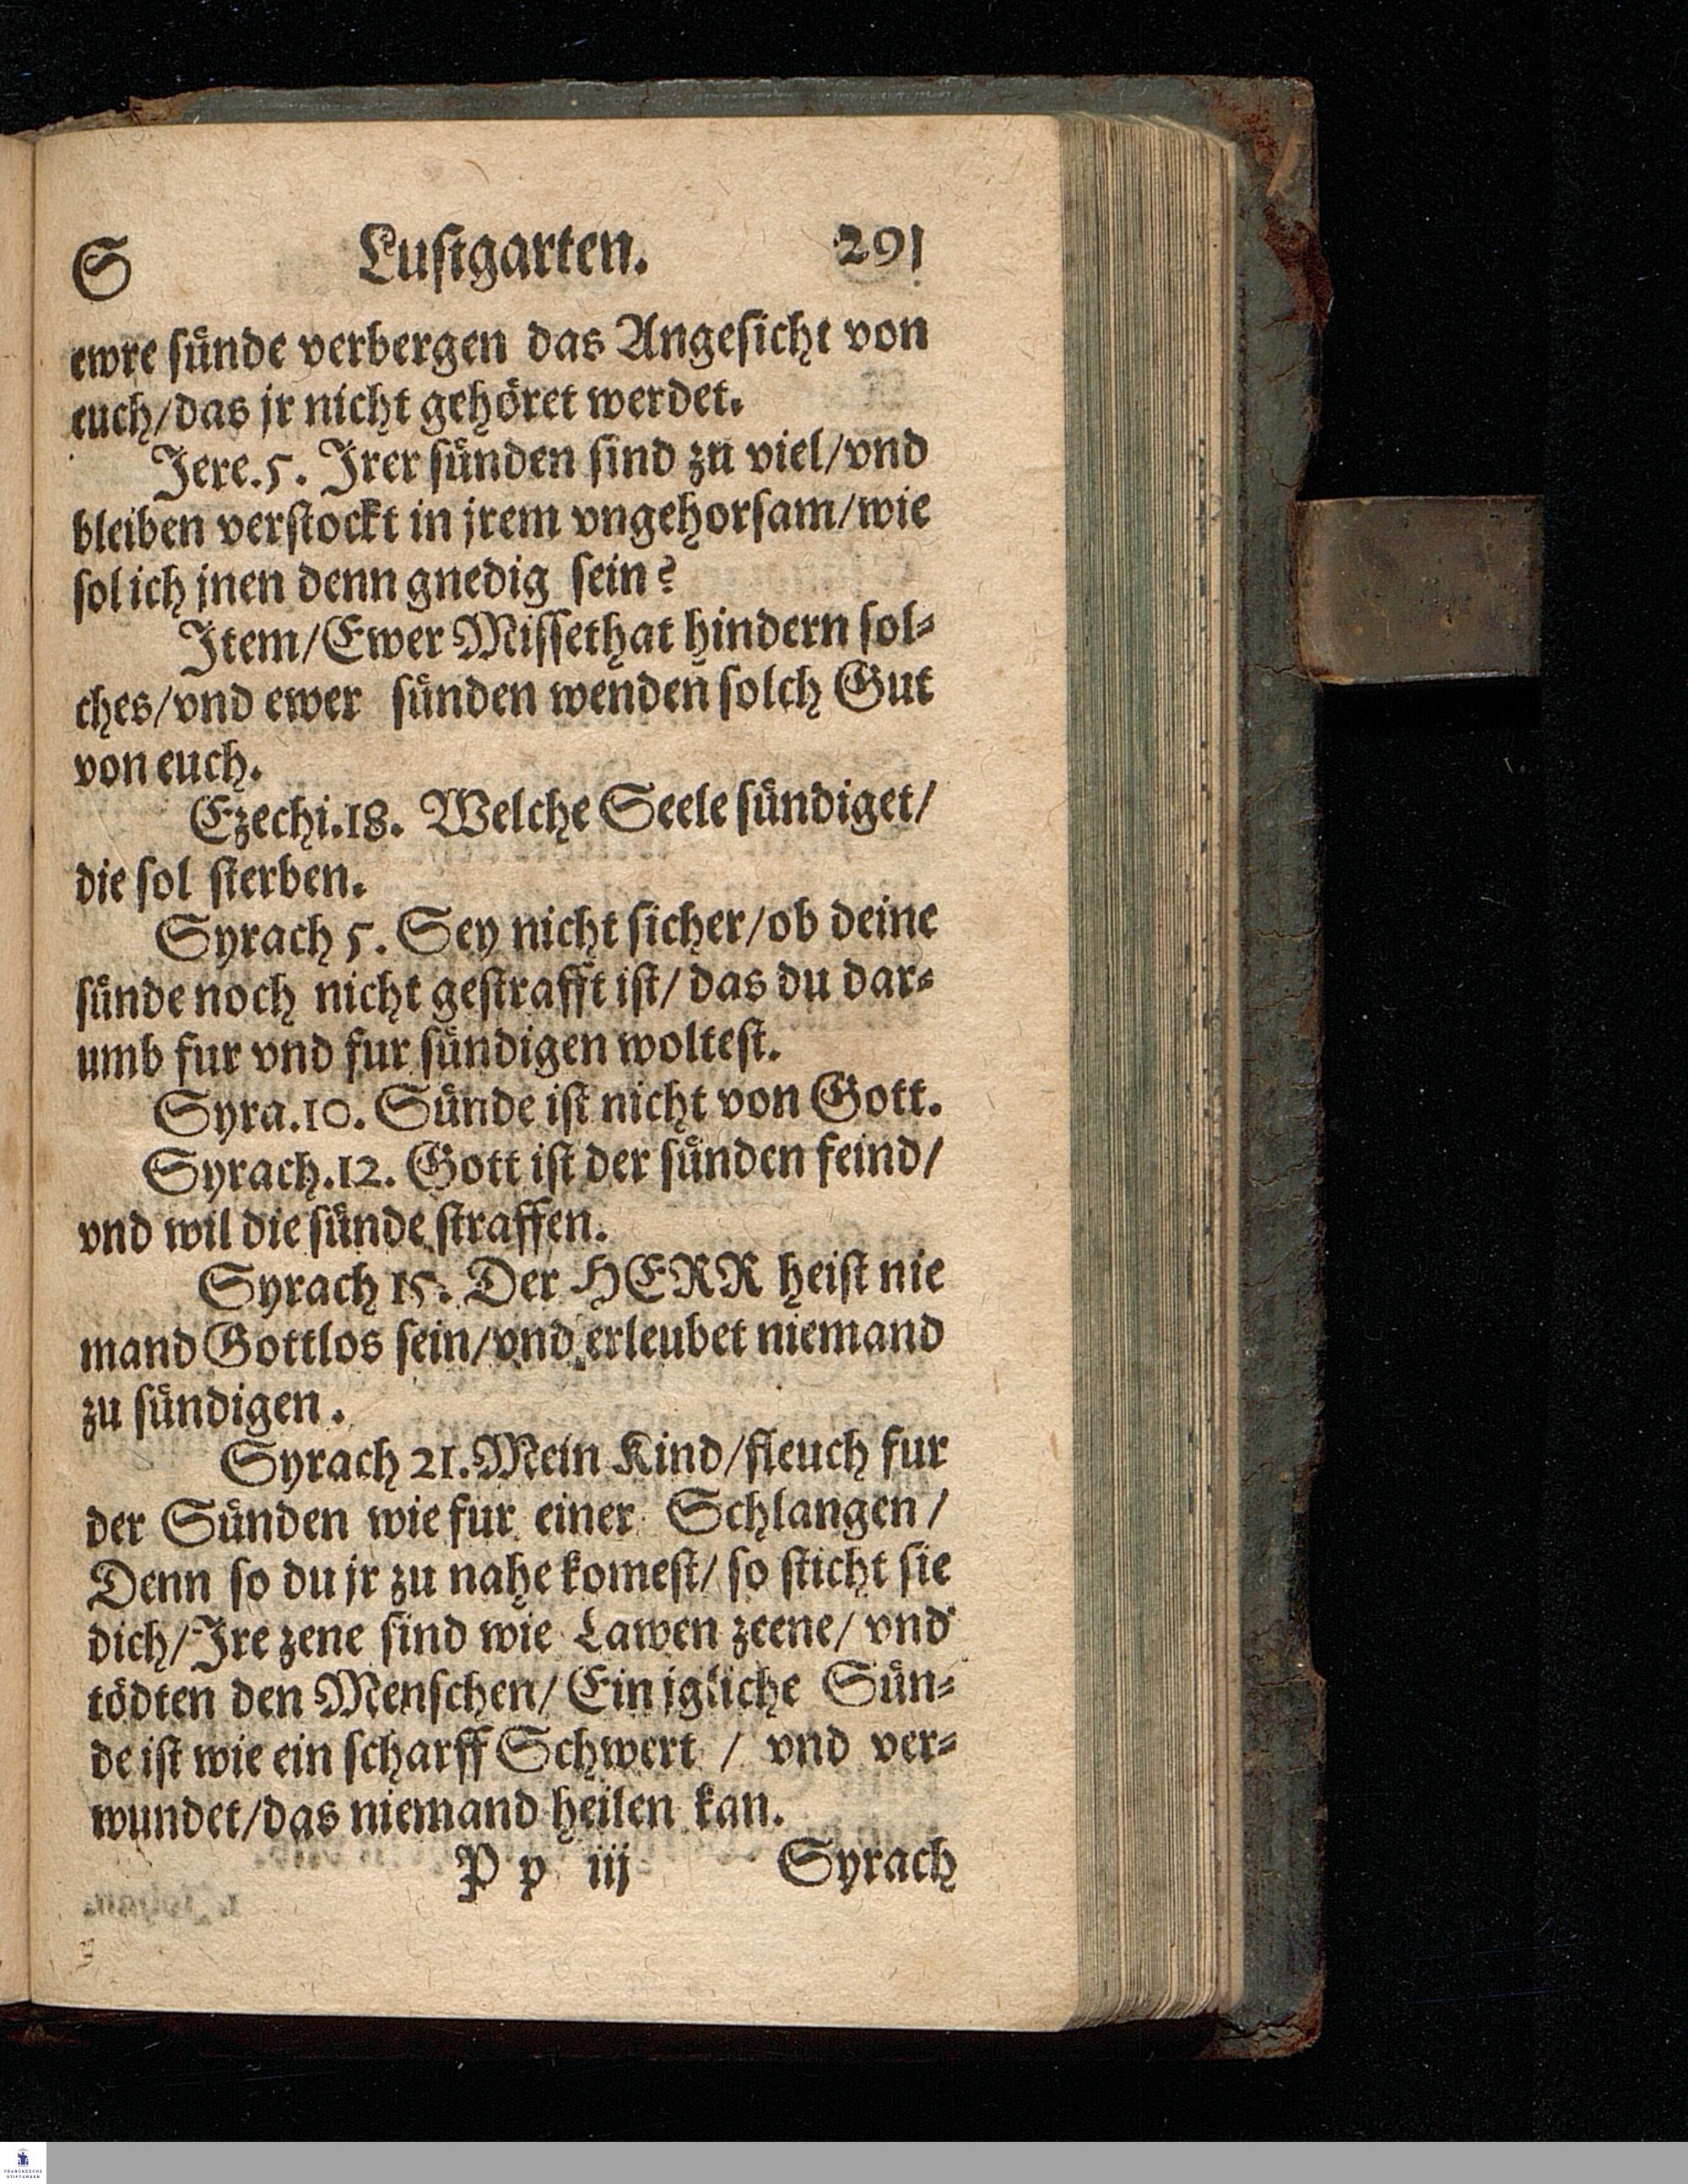 S Lustgarten. 291
ewre sünde verbergen das Angesicht von
euch/das jr nicht gehöret werdet.
Jere.5. Jrer sünden sind zu viel/vnd
bleiben verstockt in jrem vngehorsam/wie
sol ich jnen denn gnedig sein?
Jtem/Ewer Missethat hindern sol⸗
ches/vnd ewer sünden wenden solch Gut
von euch.
Ezechi.18. Welche Seele sündiget/
die sol sterben.
Syrach 5. Sey nicht sicher/ob deine
sünde noch nicht gestrafft ist/das du dar⸗
umb fur vnd fur sündigen woltest.
Syra.10. Sünde ist nicht von Gott.
Syrach.12. Gott ist der sünden feind/
vnd wil die sünde straffen.
Syrach 15. Der HERR heist nie
mand Gottlos sein/vnd erleubet niemand
zu sündigen.
Syrach 21. Mein Kind/fleuch fur
der Sünden wie fur einer Schlangen/
Denn so du jr zu nahe komest/so sticht sie
dich/Jre zene sind wie Lawen zeene/vnd
tödten den Menschen/Ein jgliche Sün⸗
de ist wie ein scharff Schwert / vnd ver⸗
wundet/das niemand heilen kan.
P p iij Syrach
FRANCKESCHE
STIFTUNGEN